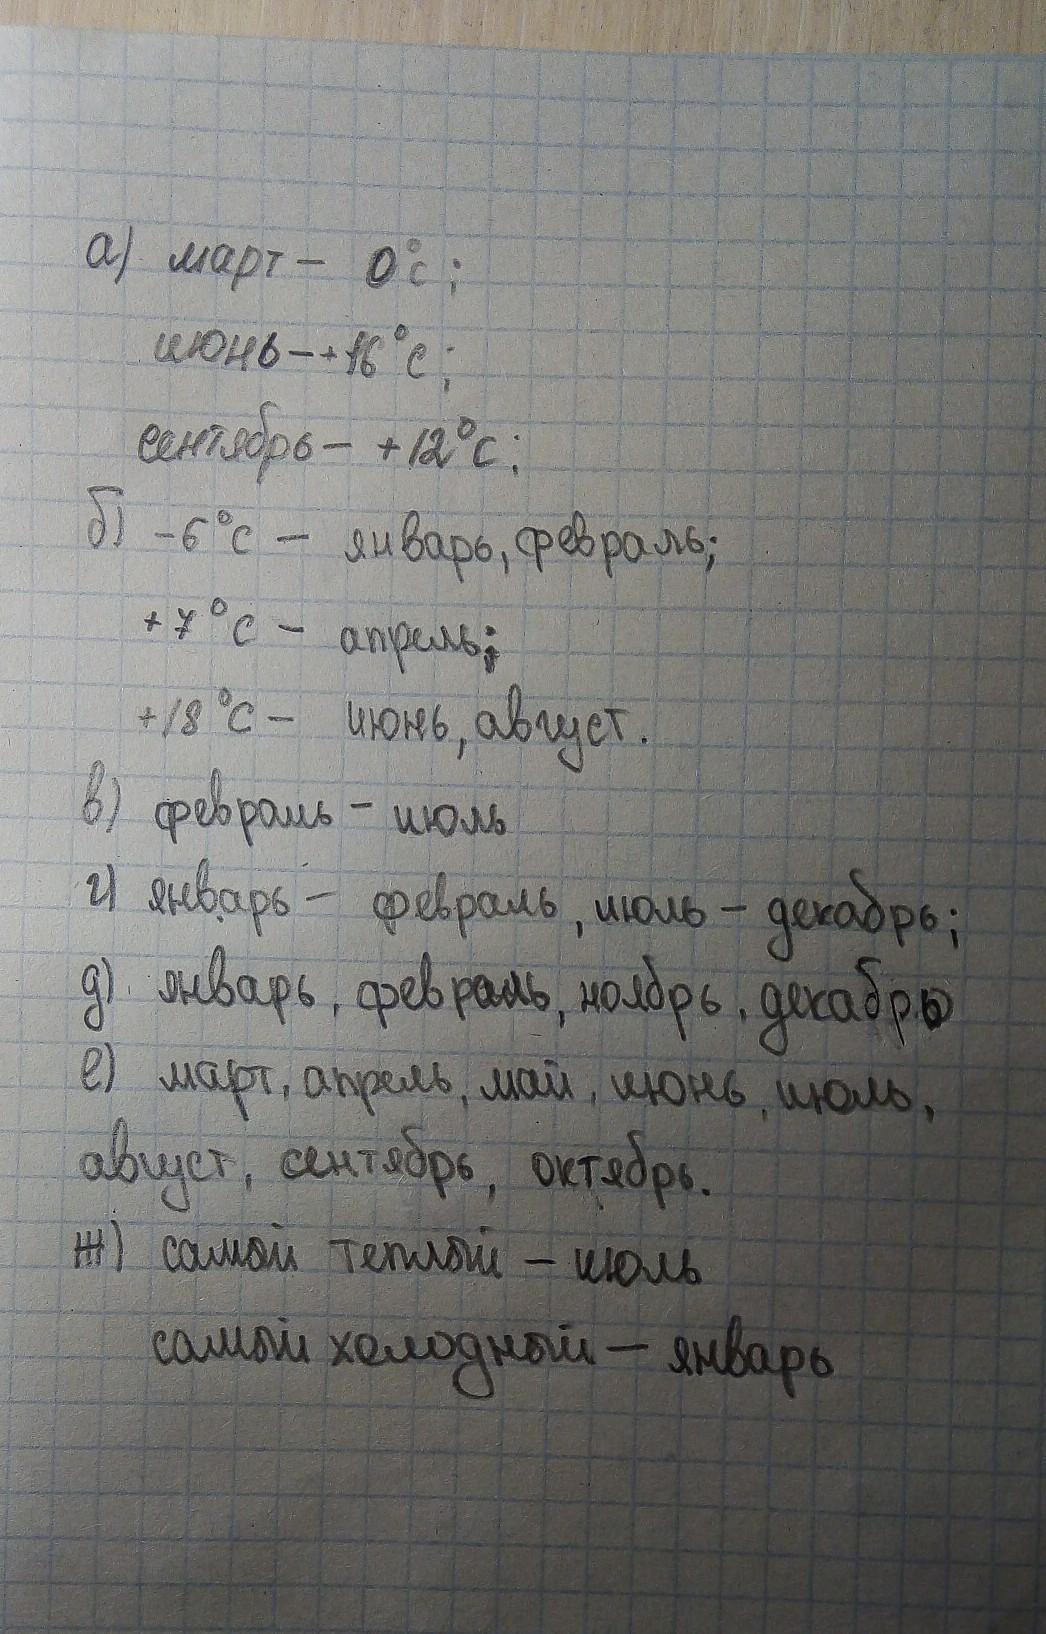 а) март – 0°С;
июнь – +16°С;
сентябрь – +12°С;
б) -6°С – январь, февраль;
+7°С – апрель;
+18°С – июнь, август.
в) февраль – июль
г) январь – февраль, июль – декабрь;
д) январь, февраль, ноябрь, декабрь
е) март, апрель, май, июнь, июль,
август, сентябрь, октябрь.
ж) самый теплый – июль
самый холодный – январь